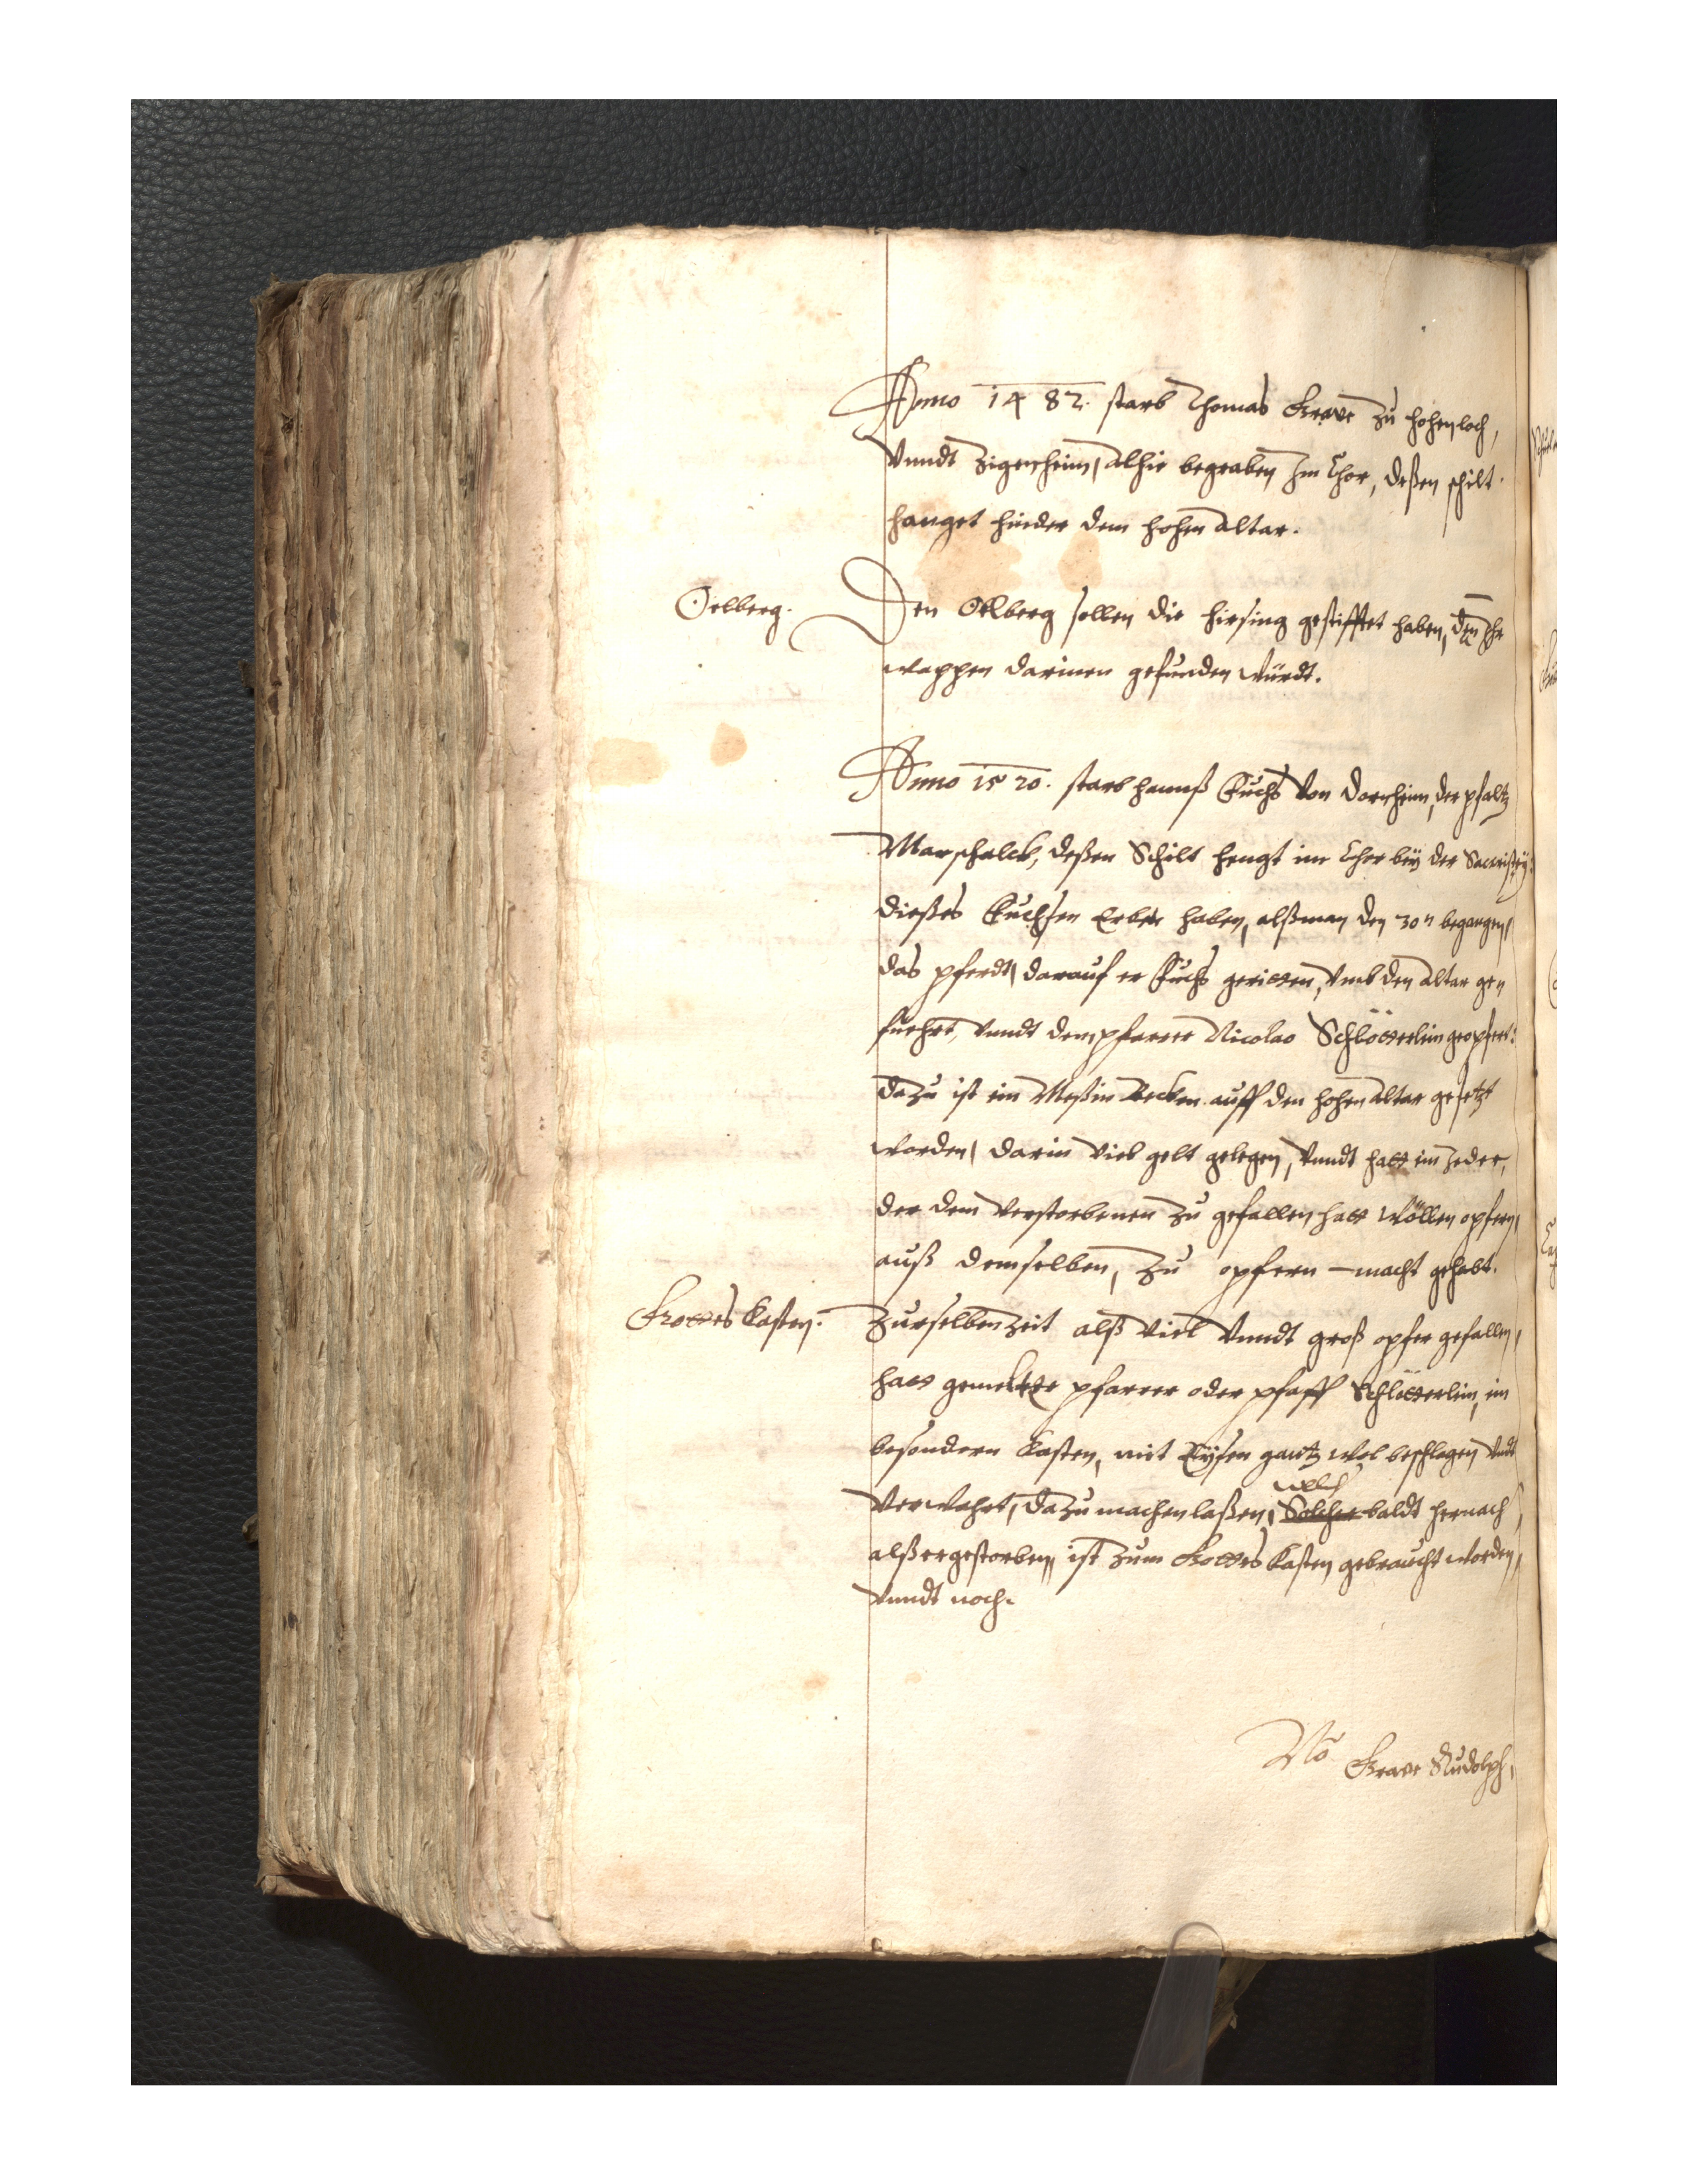 Anno 1482. starb Thomas Grave zu Hohenloch,
Vnndt Zigenheim, alhie begraben Im Chor, deßen schilt
hanget hinder dem hohen altar.
Oelberg.
Den Oelberg sollen die Hirsing gestifftet haben, den Ihr
wappen darinnen gefunden würdt.
Anno 1520. starb Hannß Fuchs von Dornheim, der pfaltz
Marschalck, deßen Schilt hengt im Chor bey der Sacristey:
dießes Fuchsen Erben haben, alß man den 30n begangen,
das pferdt, darauf er Fuchs geritten, vmb den altar ge
fuehrt, vnndt dem pfarrer Nicolao Schlötterlin geopfert:
Dazu ist ein Meßin Becken auff den hohen altar gesetzt
worden, darin viel gelt gelegen, vnndt hatt ein Jeder,
der dem verstorbenen zu gefallen hatt wöllen opfern,
auß demselben, zu opfern macht gehabt.
Gottes Kasten.
Zur selben zeit alß viel vnndt groß opfer gefallen,
hatt gemelter pfarrer oder pfaff Schlötterlin, ein
besondern Kasten, mit Eysen gantz wol beschlagen vndt
welch
verwahrt, dazu machen laßen, Solcher baldt hernach,
alß er gestorben, ist zum Gottes Kasten gebraucht worden,
vnndt noch.
No Grave Rudolph,